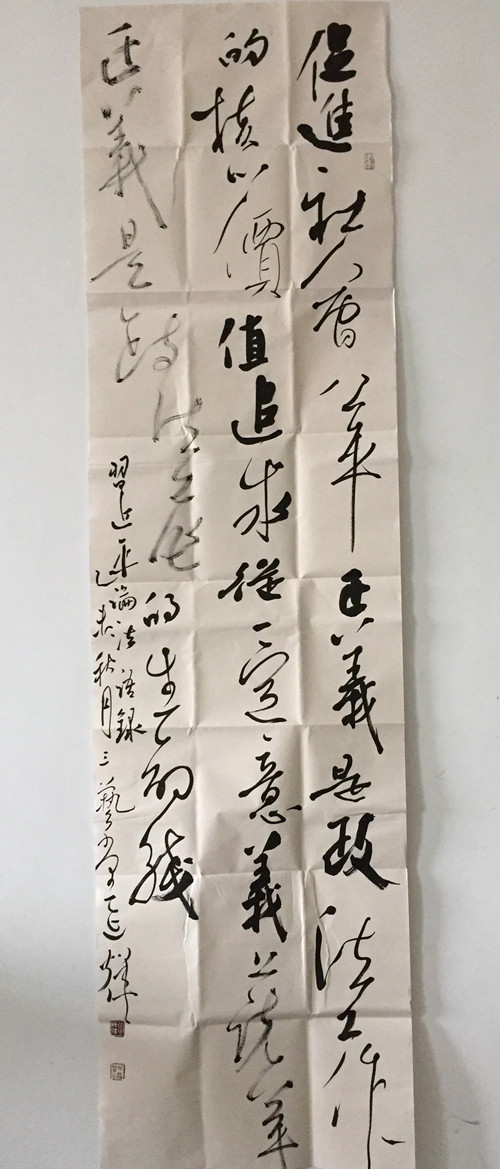 促進社會公平正義是政法工作
的核心價值追求從一定意義上說公平
正義是政法工作的生命綫
習近平論法語錄
乙未秋月三藝